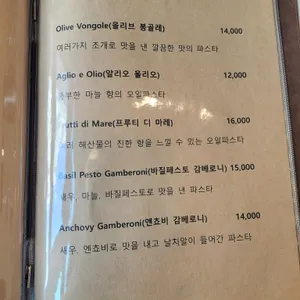 Olive Vongole(올리브 봉골레) 14,000
여러가지 조개로 맛을 낸 깔끔한 맛의 파스타
Aglio e Olio(알리오 올리오) 12,000
풍부한 마늘 향의 오일파스타
Frutti di Mare(프루티 디 마레) 16,000
여러 해산물의 진한 향을 느낄 수 있는 오일파스타
Basil Pesto Gamberoni(바질페스토 감베로니) 15,000
새우, 마늘, 바질페스토로 맛을 낸 파스타
Anchovy Gamberoni(엔쵸비 감베로니) 14,000
새우, 엔쵸비로 맛을 내고 날치알이 들어간 파스타